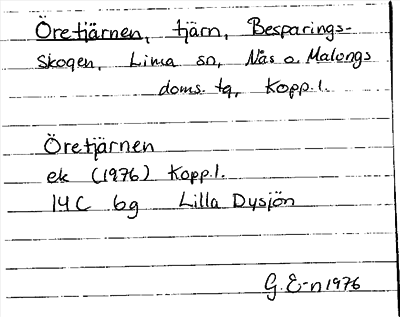 Öretjärnen, tjärn, Besparings-
skogen, Lima sn, Nås o. Malungs
doms. tg, Kopp.l.
Öretjärnen
ek (1976) Kopp.l.
14C 6g Lilla Dysjön
G. E-n 1976